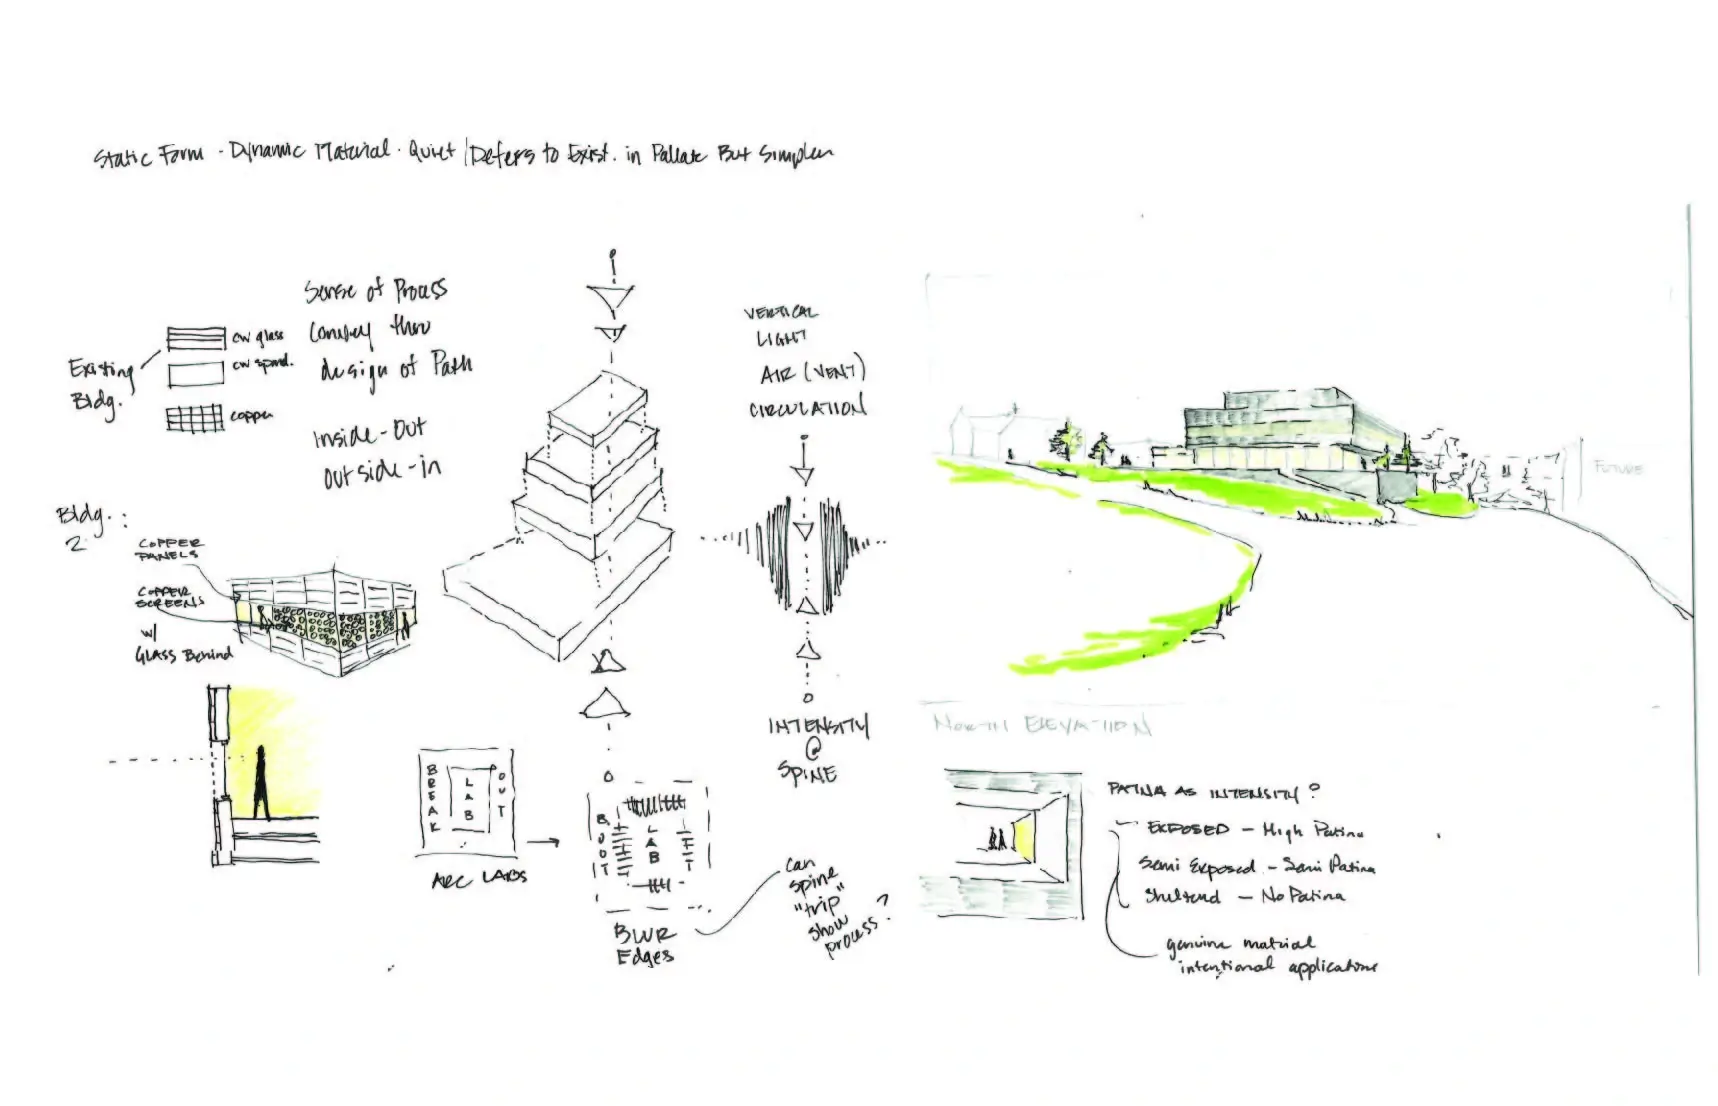 Static Form - Dynamic Material - Quiet / Defers to Exist. in Pallate But Simpler
Sense of Process
Convey thru
design of Path
Inside-Out
outside-in
Existing
Bldg.
cw glass
cw spand.
copper
Bldg. :
2
COPPER
PANELS
COPPER
SCREENS
w/
GLASS Behind
VERTICAL
LIGHT
AIR (VENT)
CIRCULATION
INTENSITY
@
SPINE
BREAK
LAB
OUT
ARC LABS
B OUT
LAB
BLUR
Edges
can
spine
"trip"
show
process?
FUTURE
NORTH ELEVATION
PATINA AS INTENSITY?
EXPOSED - High Patina
Semi Exposed - Semi Patina
Sheltered - No Patina
genuine material
intentional applications